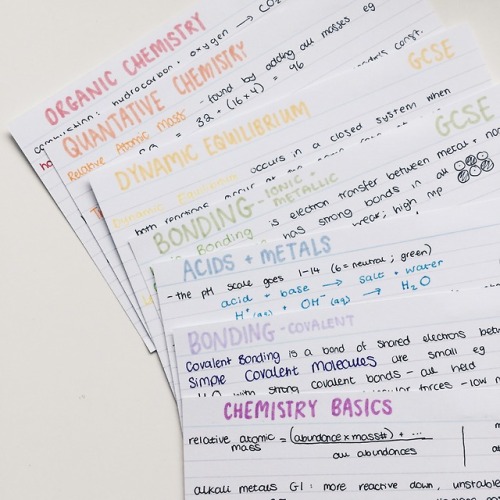 ORGANIC CHEMISTRY
combustion: hydrocarbon + oxygen → CO₂
QUANTATIVE CHEMISTRY
Relative Atomic Mass - found by adding all masses eg
= 32 + (16 x 4) = 96
DYNAMIC EQUILIBRIUM
GCSE
Dynamic Equilibrium occurs in a closed system when
both reactions occur at the same
BONDING - IONIC + METALLIC
GCSE
Ionic Bonding is electron transfer between metal + non
has strong bonds in all
high mp
ACIDS + METALS
- the pH scale goes 1-14 (6 = neutral ; green)
acid + base → salt + water
H⁺(aq) + OH⁻(aq) → H₂O
BONDING - COVALENT
Covalent Bonding is a bond of shared electrons
Simple Covalent Molecules are small eg
with strong covalent bonds - all held
forces - low
CHEMISTRY BASICS
relative atomic mass = (abundance x mass#) + ...
all abundances
alkali metals G1: more reactive down, unstable